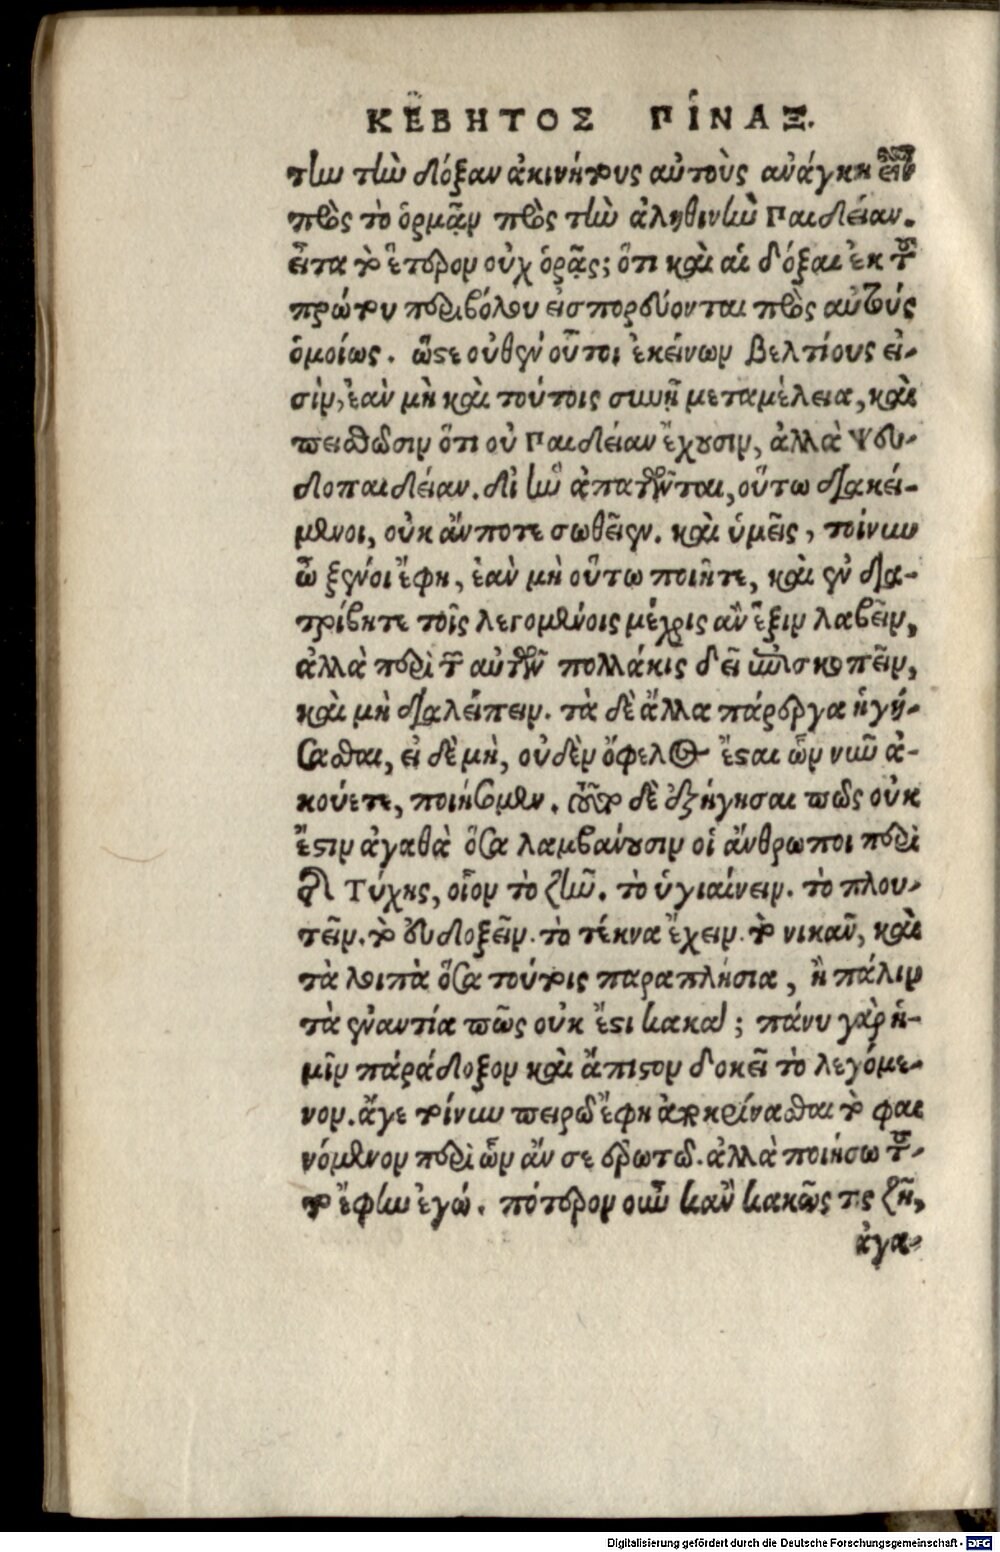 ΚΕΒΗΤΟΣ ΠΙΝΑΞ.
την τὴν δόξαν ἀκινήτους αὐτοὺς ἀνάγκη εἶναι
πρὸς τὸ ὁρμᾷν πρὸς τὴν ἀληθινὴν Παιδείαν.
εἶτα τὸ ἕτερον οὐχ ὁρᾷς; ὅτι καὶ αἱ δόξαι ἐκ τοῦ
πρώτου περιβόλου εἰσπορεύονται πρὸς αὐτούς
ὁμοίως. ὥστε οὐθὲν οὗτοι ἐκείνων βελτίους εἰ-
σὶν, ἐὰν μὴ καὶ τούτοις συνῇ μεταμέλεια, καὶ
πεισθῶσιν ὅτι οὐ Παιδείαν ἔχουσιν, ἀλλὰ Ψευ-
δοπαιδείαν. δι' ἣν ἀπατῶνται, οὕτω διακεί-
μενοι, οὐκ ἄν ποτε σωθεῖεν. καὶ ὑμεῖς, τοίνυν
ὦ ξένοι ἔφη, ἐὰν μὴ οὕτω ποιῆτε, καὶ ἐν δια-
τρίβητε τοῖς λεγομένοις μέχρις ἂν ἕξιν λαβεῖν,
ἀλλὰ περὶ τῶν αὐτῶν πολλάκις δεῖ ἐπισκοπεῖν,
καὶ μὴ διαλείπειν. τὰ δὲ ἄλλα πάρεργα ἡγή-
σασθαι, εἰ δὲ μὴ, οὐδὲν ὄφελος ἔσται ὧν νῦν ἀ-
κούετε, ποιήσομεν. τοῦτο δὲ ἐξήγησαι πῶς οὐκ
ἔστιν ἀγαθὰ ὅσα λαμβάνουσιν οἱ ἄνθρωποι περὶ
τῆς Τύχης, οἷον τὸ ζῆν. τὸ ὑγιαίνειν. τὸ πλου-
τεῖν. τὸ εὐδοξεῖν. τὸ τέκνα ἔχειν. τὸ νικᾶν, καὶ
τὰ λοιπὰ ὅσα τούτοις παραπλήσια, ἢ πάλιν
τὰ ἐναντία πῶς οὐκ ἔστι κακά; πάνυ γὰρ ἡ-
μῖν παράδοξον καὶ ἄπιστον δοκεῖ τὸ λεγόμε-
νον. ἄγε τοίνυν πειρῶ ἔφη ἀποκρίνασθαι τὸ φαι
νόμενον περὶ ὧν ἄν σε ἐρωτῶ. ἀλλὰ ποιήσω τοῦ-
το ἔφην ἐγώ. πότερον οὖν κἂν κακῶς τις ζῇ,
ἀγα-
Digitalisierung gefördert durch die Deutsche Forschungsgemeinschaft - DFG